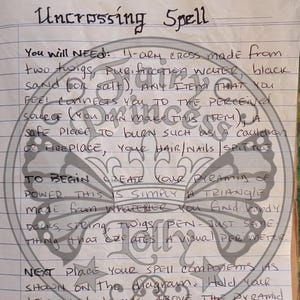 Uncrossing Spell
You will NEED: 4-arm cross made from
two twigs, purification water, black
sand (or salt), any item that you
feel connects you to the perceived
source (you can make this item), a
safe place to burn such as a cauldron
or fireplace, your hair/nails/spit
TO BEGIN CREATE YOUR PYRAMID OF
POWER THIS IS SIMPLY A TRIANGLE
made from whatever you find handy
string, twigs, pen-just
thing that creates a visual
NEXT place your spell components as
shown on the diagram. Hold your
above the pyramid
Fairy
Princess